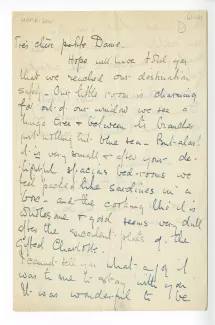 Très chère petite Dame.
Hope will have told you
that we reached our destination
safely - Our little room is charming
for out of our window we see a
huge tree & between its branches
nothing but blue sea - But alas!
it is very small & after your de-
lightful spacious bed-rooms we
feel packed like sardines in a
box - and the cooking tho' it is
wholesome & good seems very dull
after the succulent plats of the
gifted Charlotte.
I cannot tell you what a joy it
was to me to stay with you
It was wonderful to be